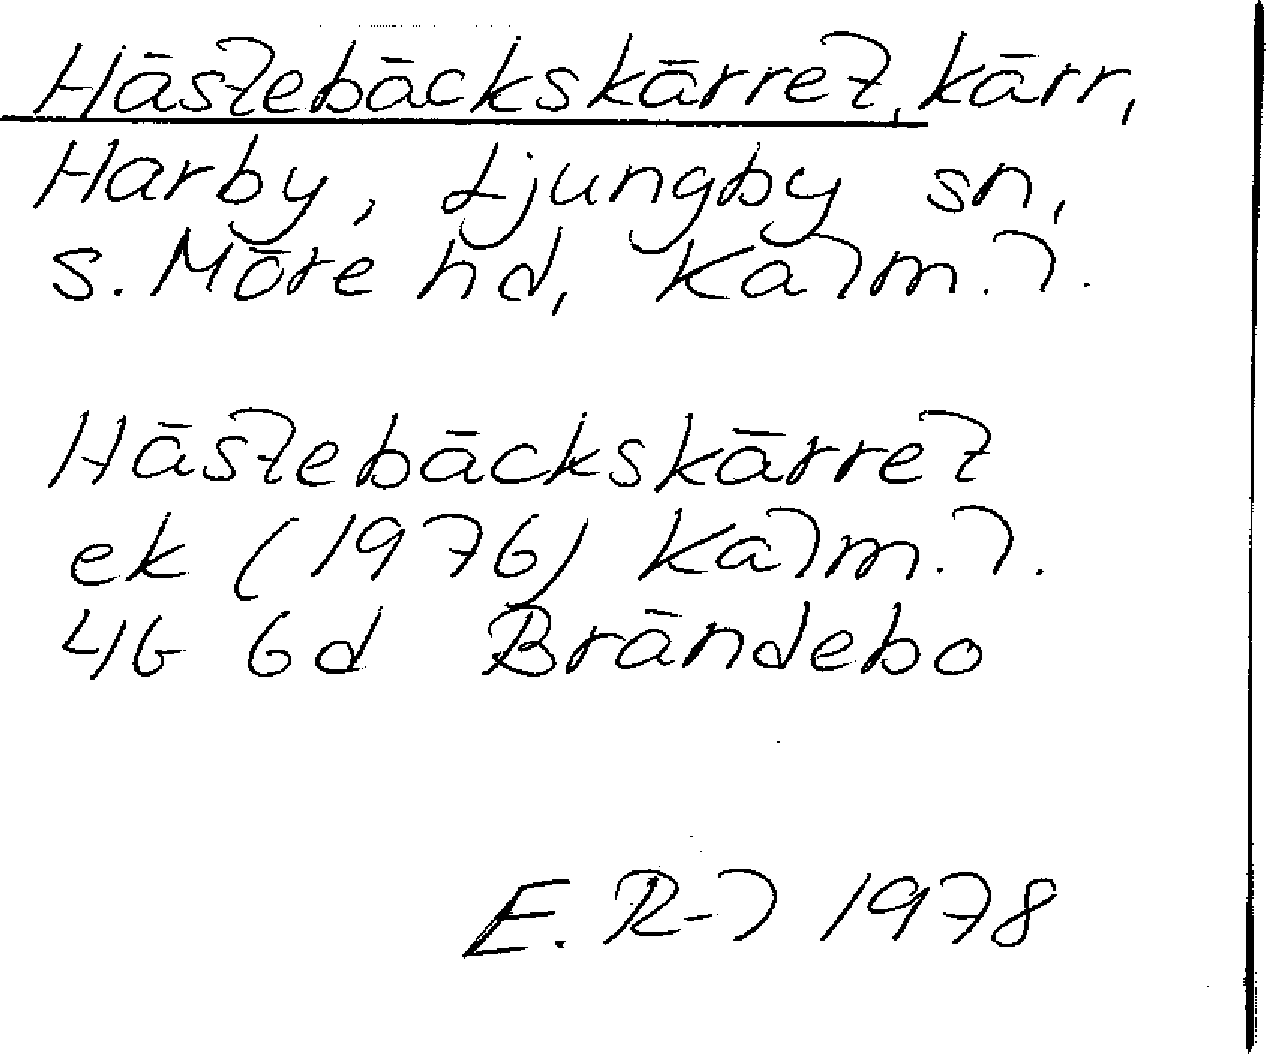 Hästebäckskärret, kärr,
Harby, Ljungby sn,
S. Möre hd, Kalm. l.
Hästebäckskärret
ek (1976) Kalm. l.
4G 6d Brändebo
E. R-l 1978